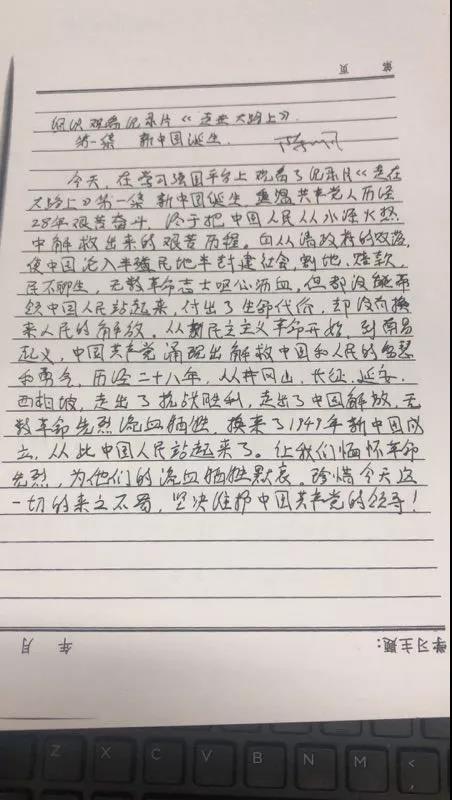 第 页
组织观看纪录片《走在大路上》
第一集 新中国诞生
今天,在学习强国平台上观看了纪录片《走在
大路上》第一集 新中国诞生,重温共产党人历经
28年艰苦奋斗,终于把中国人民从水深火热
中解救出来的艰苦历程。自从清政府的败落,
使中国沦入半殖民地半封建社会,割地、赔款,
民不聊生,无数革命志士呕心沥血,但都没能带
领中国人民站起来,付出了生命代价,却没有换
来人民的解放。从新民主主义革命开始,到南昌
起义,中国共产党涌现出解救中国和人民的智慧
和勇气,历经二十八年,从井冈山、长征、延安、
西柏坡,走出了抗战胜利,走出了中国解放,无
数革命先烈流血牺牲,换来了1949年新中国成
立,从此中国人民站起来了。让我们缅怀革命
先烈,为他们的流血牺牲默哀。珍惜今天这
一切的来之不易,坚决维护中国共产党的领导!
学习主题: 年 月
Z X C V B N M < ,